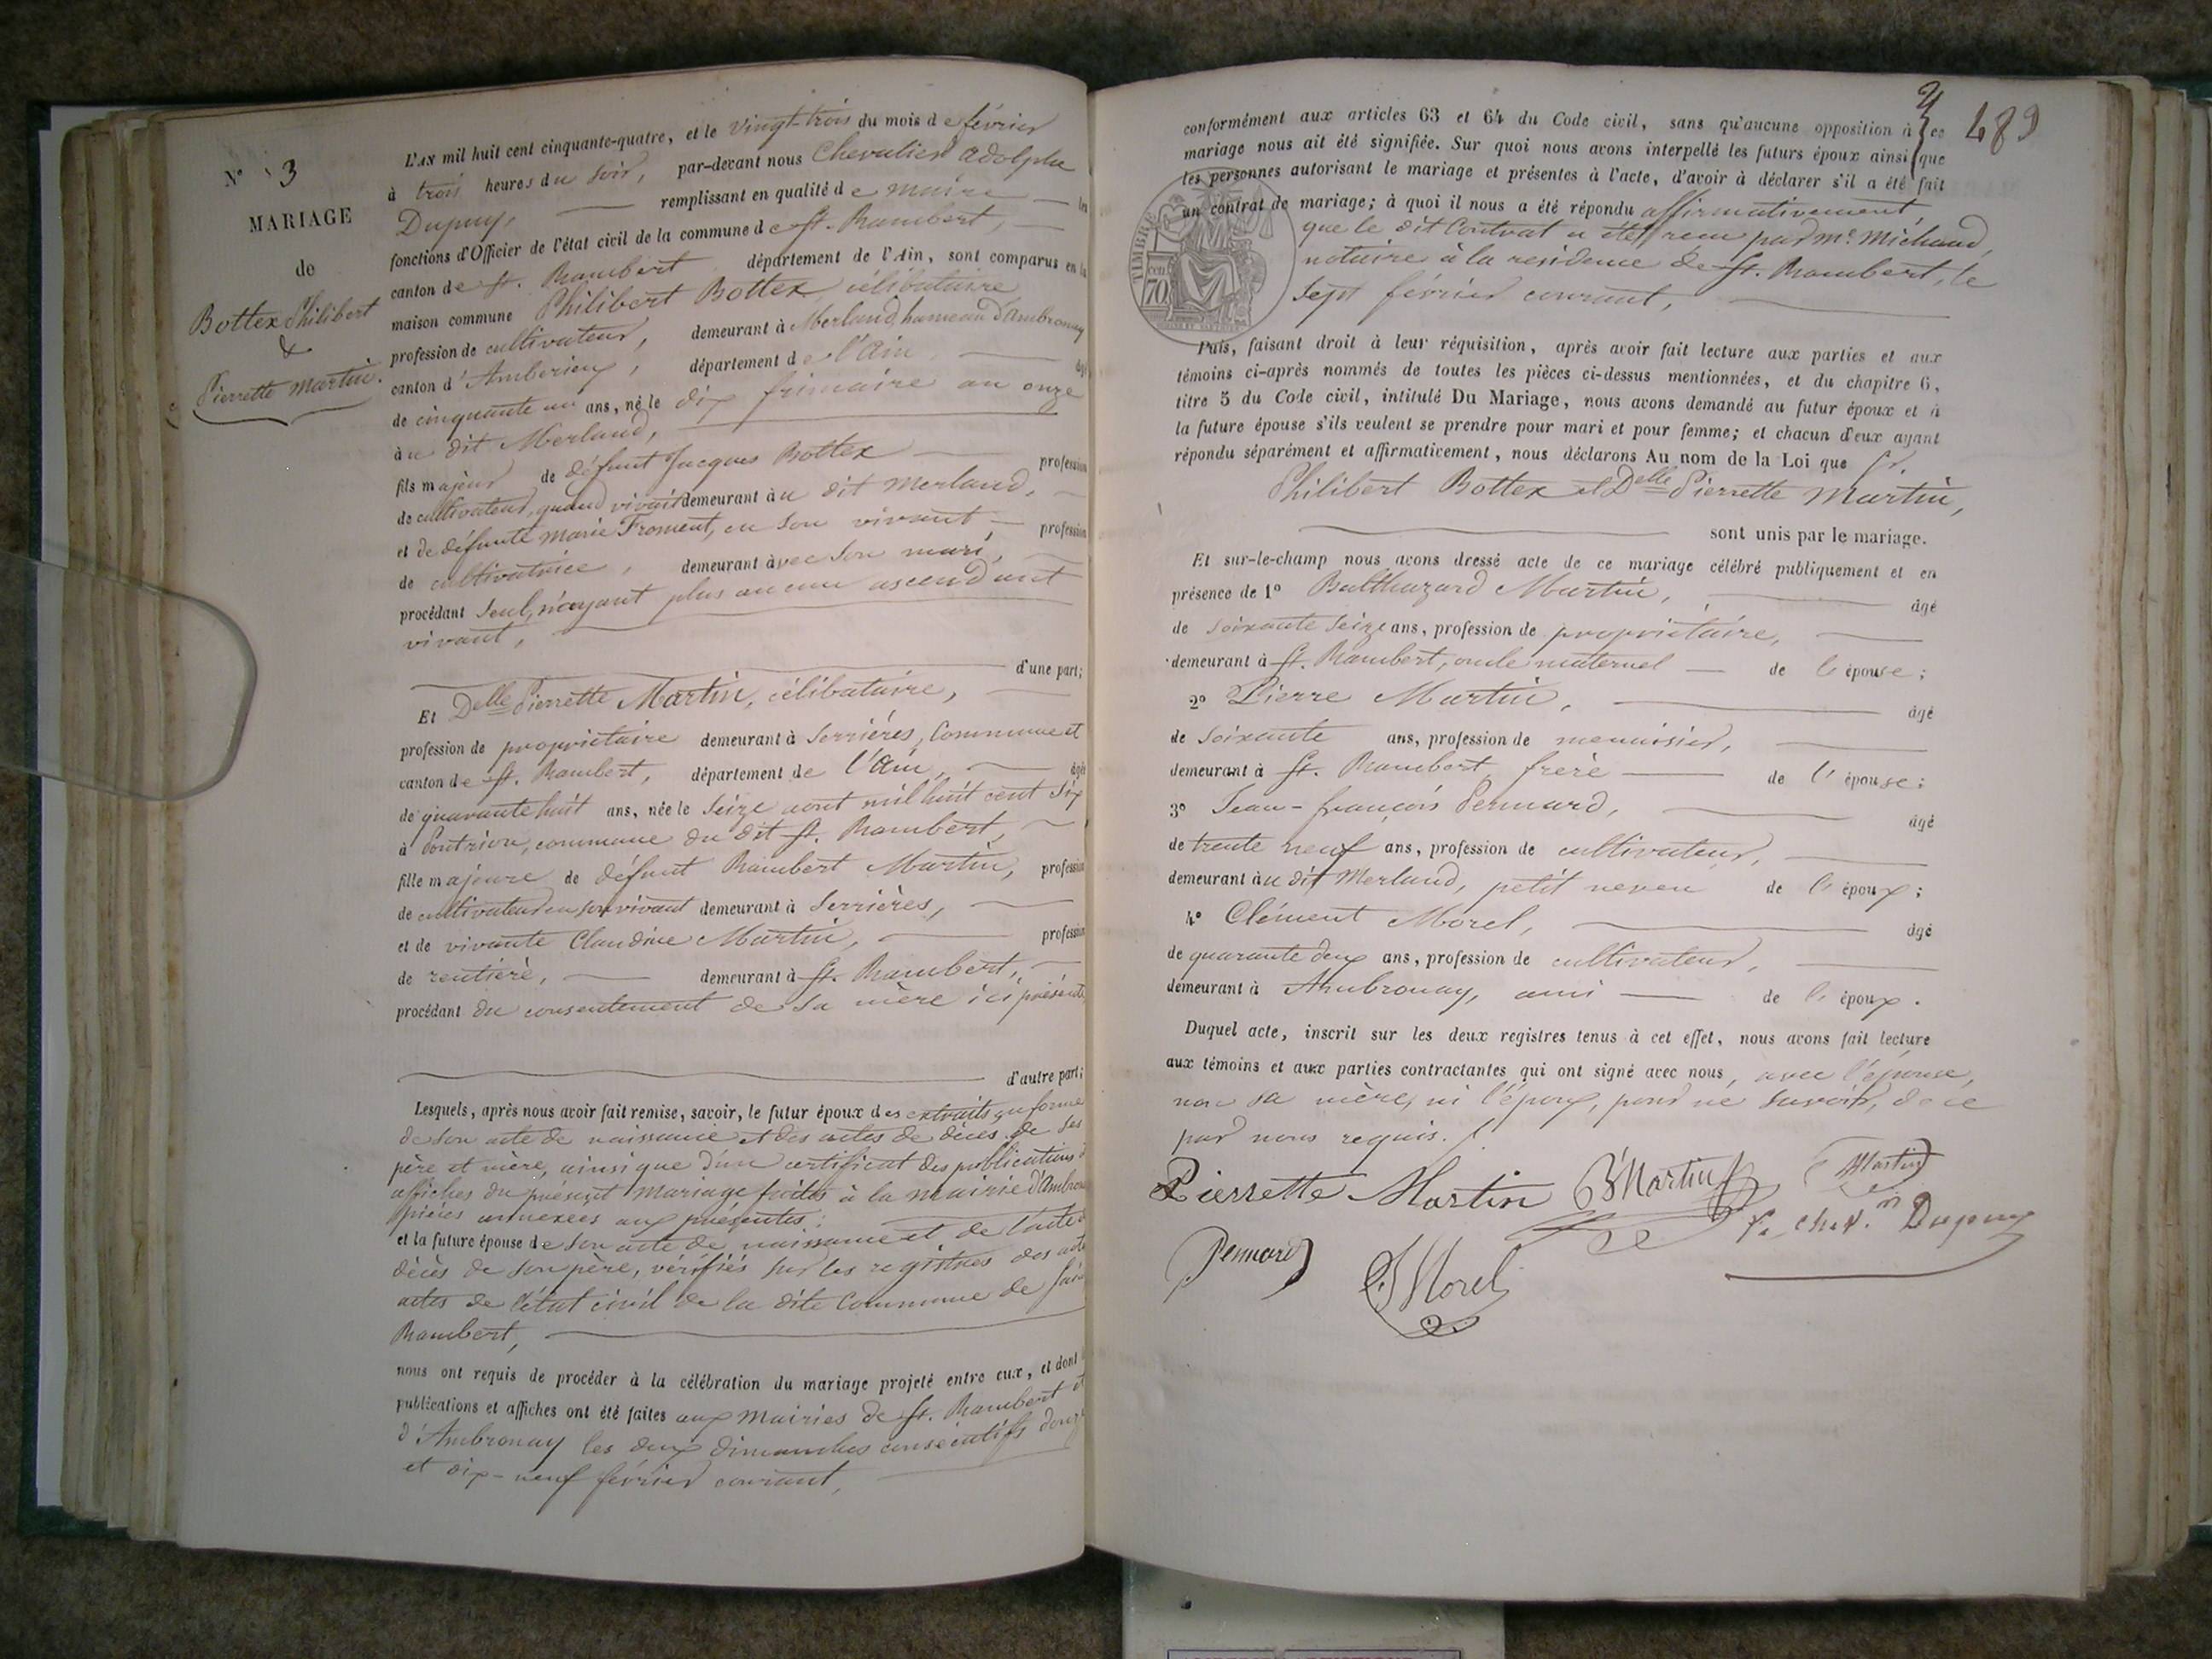 N° 3
MARIAGE
de
Bottex Philibert
&
Pierrette Martin.
L'AN mil huit cent cinquante-quatre, et le vingt-trois du mois de février
à trois heures du soir, par-devant nous Chevalier Adolphe
Dupuy, remplissant en qualité de maire les
fonctions d'Officier de l'état civil de la commune de St. Rambert,
canton de St. Rambert département de l'Ain, sont comparus en la
maison commune Philibert Bottex, célibataire
profession de cultivateur, demeurant à Merland, hameau d'Ambronay
canton d'Amberieux, département de l'Ain, âgé
de cinquante un ans, né le dix frimaire an onze
au dit Merland,
fils majeur de défunt Jacques Bottex profession
de cultivateur, quand vivait demeurant au dit Merland,
et de défunte Marie Froment, en son vivant profession
de cultivatrice, demeurant avec son mari,
procédant seul, n'ayant plus aucun ascendant
vivant,
d'une part;
Et Delle Pierrette Martin, célibataire,
profession de propriétaire demeurant à Serrières, commune et
canton de St. Rambert, département de l'Ain, âgée
de quarante huit ans, née le seize août mil huit cent six
à commune du dit St. Rambert,
fille majeure de défunt Rambert Martin, profession
de cultivateur en son vivant demeurant à Serrières,
et de vivante Claudine Martin, profession
de rentière, demeurant à St. Rambert,
procédant du consentement de sa mère ici présente
d'autre part;
Lesquels, après nous avoir fait remise, savoir, le futur époux des extraits en forme
de son acte de naissance et des actes de décès de ses
père et mère, ainsi que d'un certificat des publications &
affiches du présent mariage faites à la mairie d'Ambronay
pièces annexées aux présentes;
et la future épouse de son acte de naissance et de l'acte de
décès de son père, vérifiés sur les registres des actes
actes de l'état civil de la dite commune de Saint
Rambert,
nous ont requis de procéder à la célébration du mariage projeté entre eux, et dont les
publications et affiches ont été faites aux mairies de St. Rambert et
d'Ambronay les deux dimanches consécutifs douze
et dix-neuf février courant,
489
conformément aux articles 63 et 64 du Code civil, sans qu'aucune opposition à ce
mariage nous ait été signifiée. Sur quoi nous avons interpellé les futurs époux ainsi que
les personnes autorisant le mariage et présentes à l'acte, d'avoir à déclarer s'il a été fait
un contrat de mariage; à quoi il nous a été répondu affirmativement,
que le dit contrat a été reçu par Me. Michaud,
notaire à la résidence de St. Rambert, le
sept février courant,
TIMBRE
70
Puis, faisant droit à leur réquisition, après avoir fait lecture aux parties et aux
témoins ci-après nommés de toutes les pièces ci-dessus mentionnées, et du chapitre 6,
titre 5 du Code civil, intitulé Du Mariage, nous avons demandé au futur époux et à
la future épouse s'ils veulent se prendre pour mari et pour femme; et chacun d'eux ayant
répondu séparément et affirmativement, nous déclarons Au nom de la Loi que Sr.
Philibert Bottex et Delle Pierrette Martin,
sont unis par le mariage.
Et sur-le-champ nous avons dressé acte de ce mariage célébré publiquement et en
présence de 1° Balthazard Martin, âgé
de soixante seize ans, profession de propriétaire,
demeurant à St. Rambert, oncle maternel de l'épouse;
2° Pierre Martin, âgé
de soixante ans, profession de menuisier,
demeurant à St. Rambert, frère de l'épouse;
3° Jean-françois Pennard, âgé
de trente neuf ans, profession de cultivateur,
demeurant au dit Merland, petit neveu de l'époux;
4° Clément Morel, âgé
de quarante deux ans, profession de cultivateur,
demeurant à Ambronay, ami de l'époux.
Duquel acte, inscrit sur les deux registres tenus à cet effet, nous avons fait lecture
aux témoins et aux parties contractantes qui ont signé avec nous, avec l'épouse,
non sa mère, ni l'époux, pour ne savoir, de ce
par nous requis.
Pierrette Martin B Martin Martin
Le chev. Dupuy
Pennard Morel